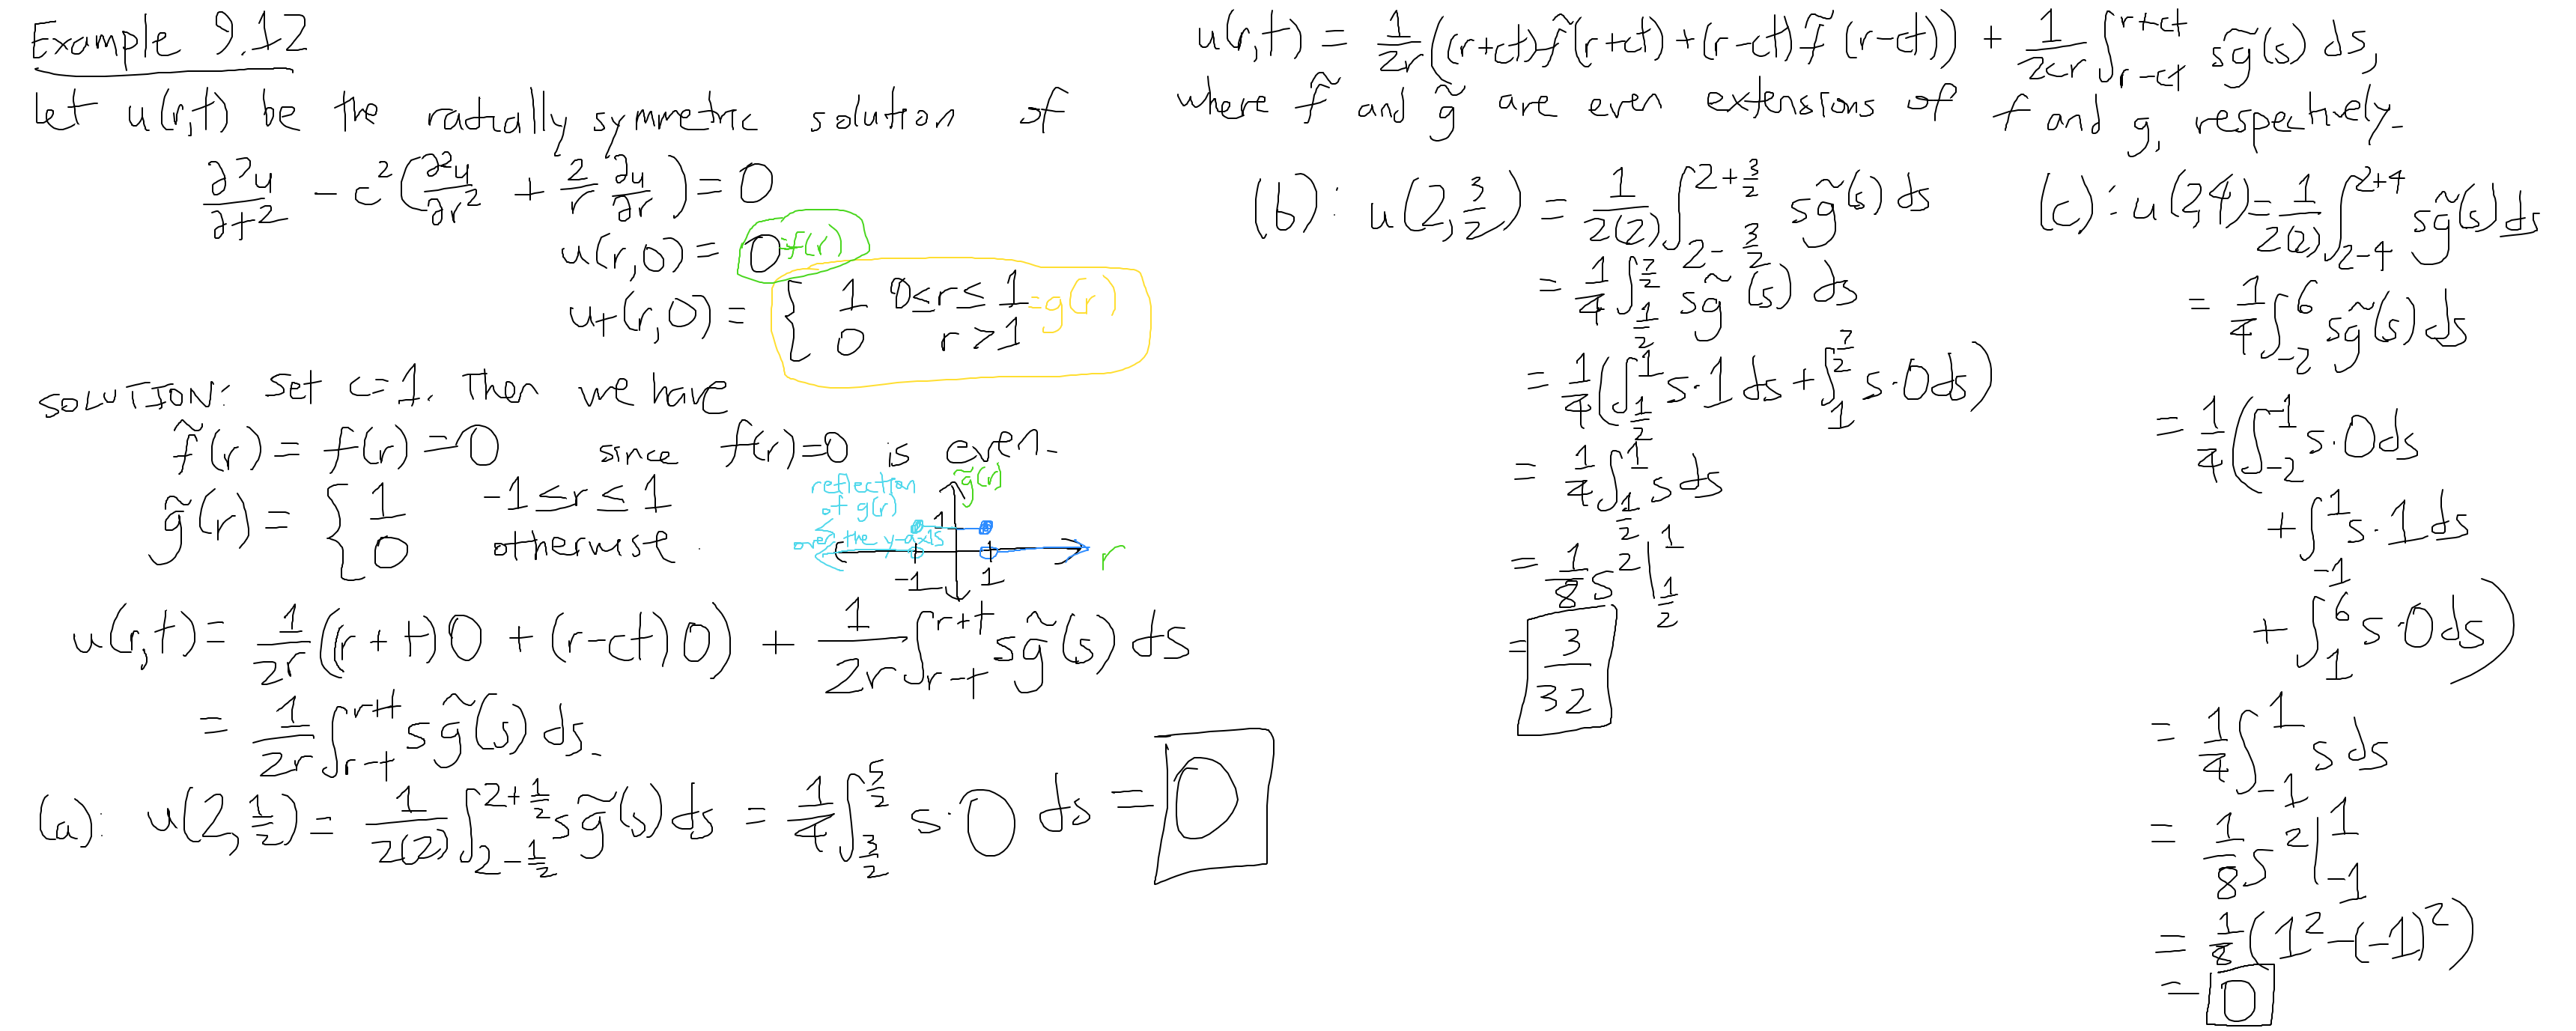 Example 9.12
Let u(r,t) be the radially symmetric solution of
∂²u/∂t² − c²(∂²u/∂r² + 2/r ∂u/∂r) = 0
u(r,0) = 0 =f(r)
u_t(r,0) = { 1 0≤r≤1 =g(r)
0 r>1
SOLUTION: Set c=1. Then we have
f̃(r) = f(r) = 0 since f(r)=0 is even.
g̃(r) = { 1 -1≤r≤1
0 otherwise.
reflection
of g(r)
over the y-axis
g̃(r)
1
-1 1
r
u(r,t) = 1/2r ((r+t)0 + (r-ct)0) + 1/2r ∫_{r-t}^{r+t} s g̃(s) ds
= 1/2r ∫_{r-t}^{r+t} s g̃(s) ds.
(a): u(2,1/2) = 1/2(2) ∫_{2-1/2}^{2+1/2} s g̃(s) ds = 1/4 ∫_{3/2}^{5/2} s·0 ds = 0
u(r,t) = 1/2r ((r+ct)f̃(r+ct) + (r-ct)f̃(r-ct)) + 1/2cr ∫_{r-ct}^{r+ct} s g̃(s) ds,
where f̃ and g̃ are even extensions of f and g, respectively.
(b): u(2,3/2) = 1/2(2) ∫_{2-3/2}^{2+3/2} s g̃(s) ds
= 1/4 ∫_{1/2}^{7/2} s g̃(s) ds
= 1/4 (∫_{1/2}^{1} s·1 ds + ∫_{1}^{7/2} s·0 ds)
= 1/4 ∫_{1/2}^{1} s ds
= 1/8 s² |_{1/2}^{1}
= 3/32
(c): u(2,4) = 1/2(2) ∫_{2-4}^{2+4} s g̃(s) ds
= 1/4 ∫_{-2}^{6} s g̃(s) ds
= 1/4 (∫_{-2}^{-1} s·0 ds
+ ∫_{-1}^{1} s·1 ds
+ ∫_{1}^{6} s·0 ds)
= 1/4 ∫_{-1}^{1} s ds
= 1/8 s² |_{-1}^{1}
= 1/8 (1² − (-1)²)
= 0